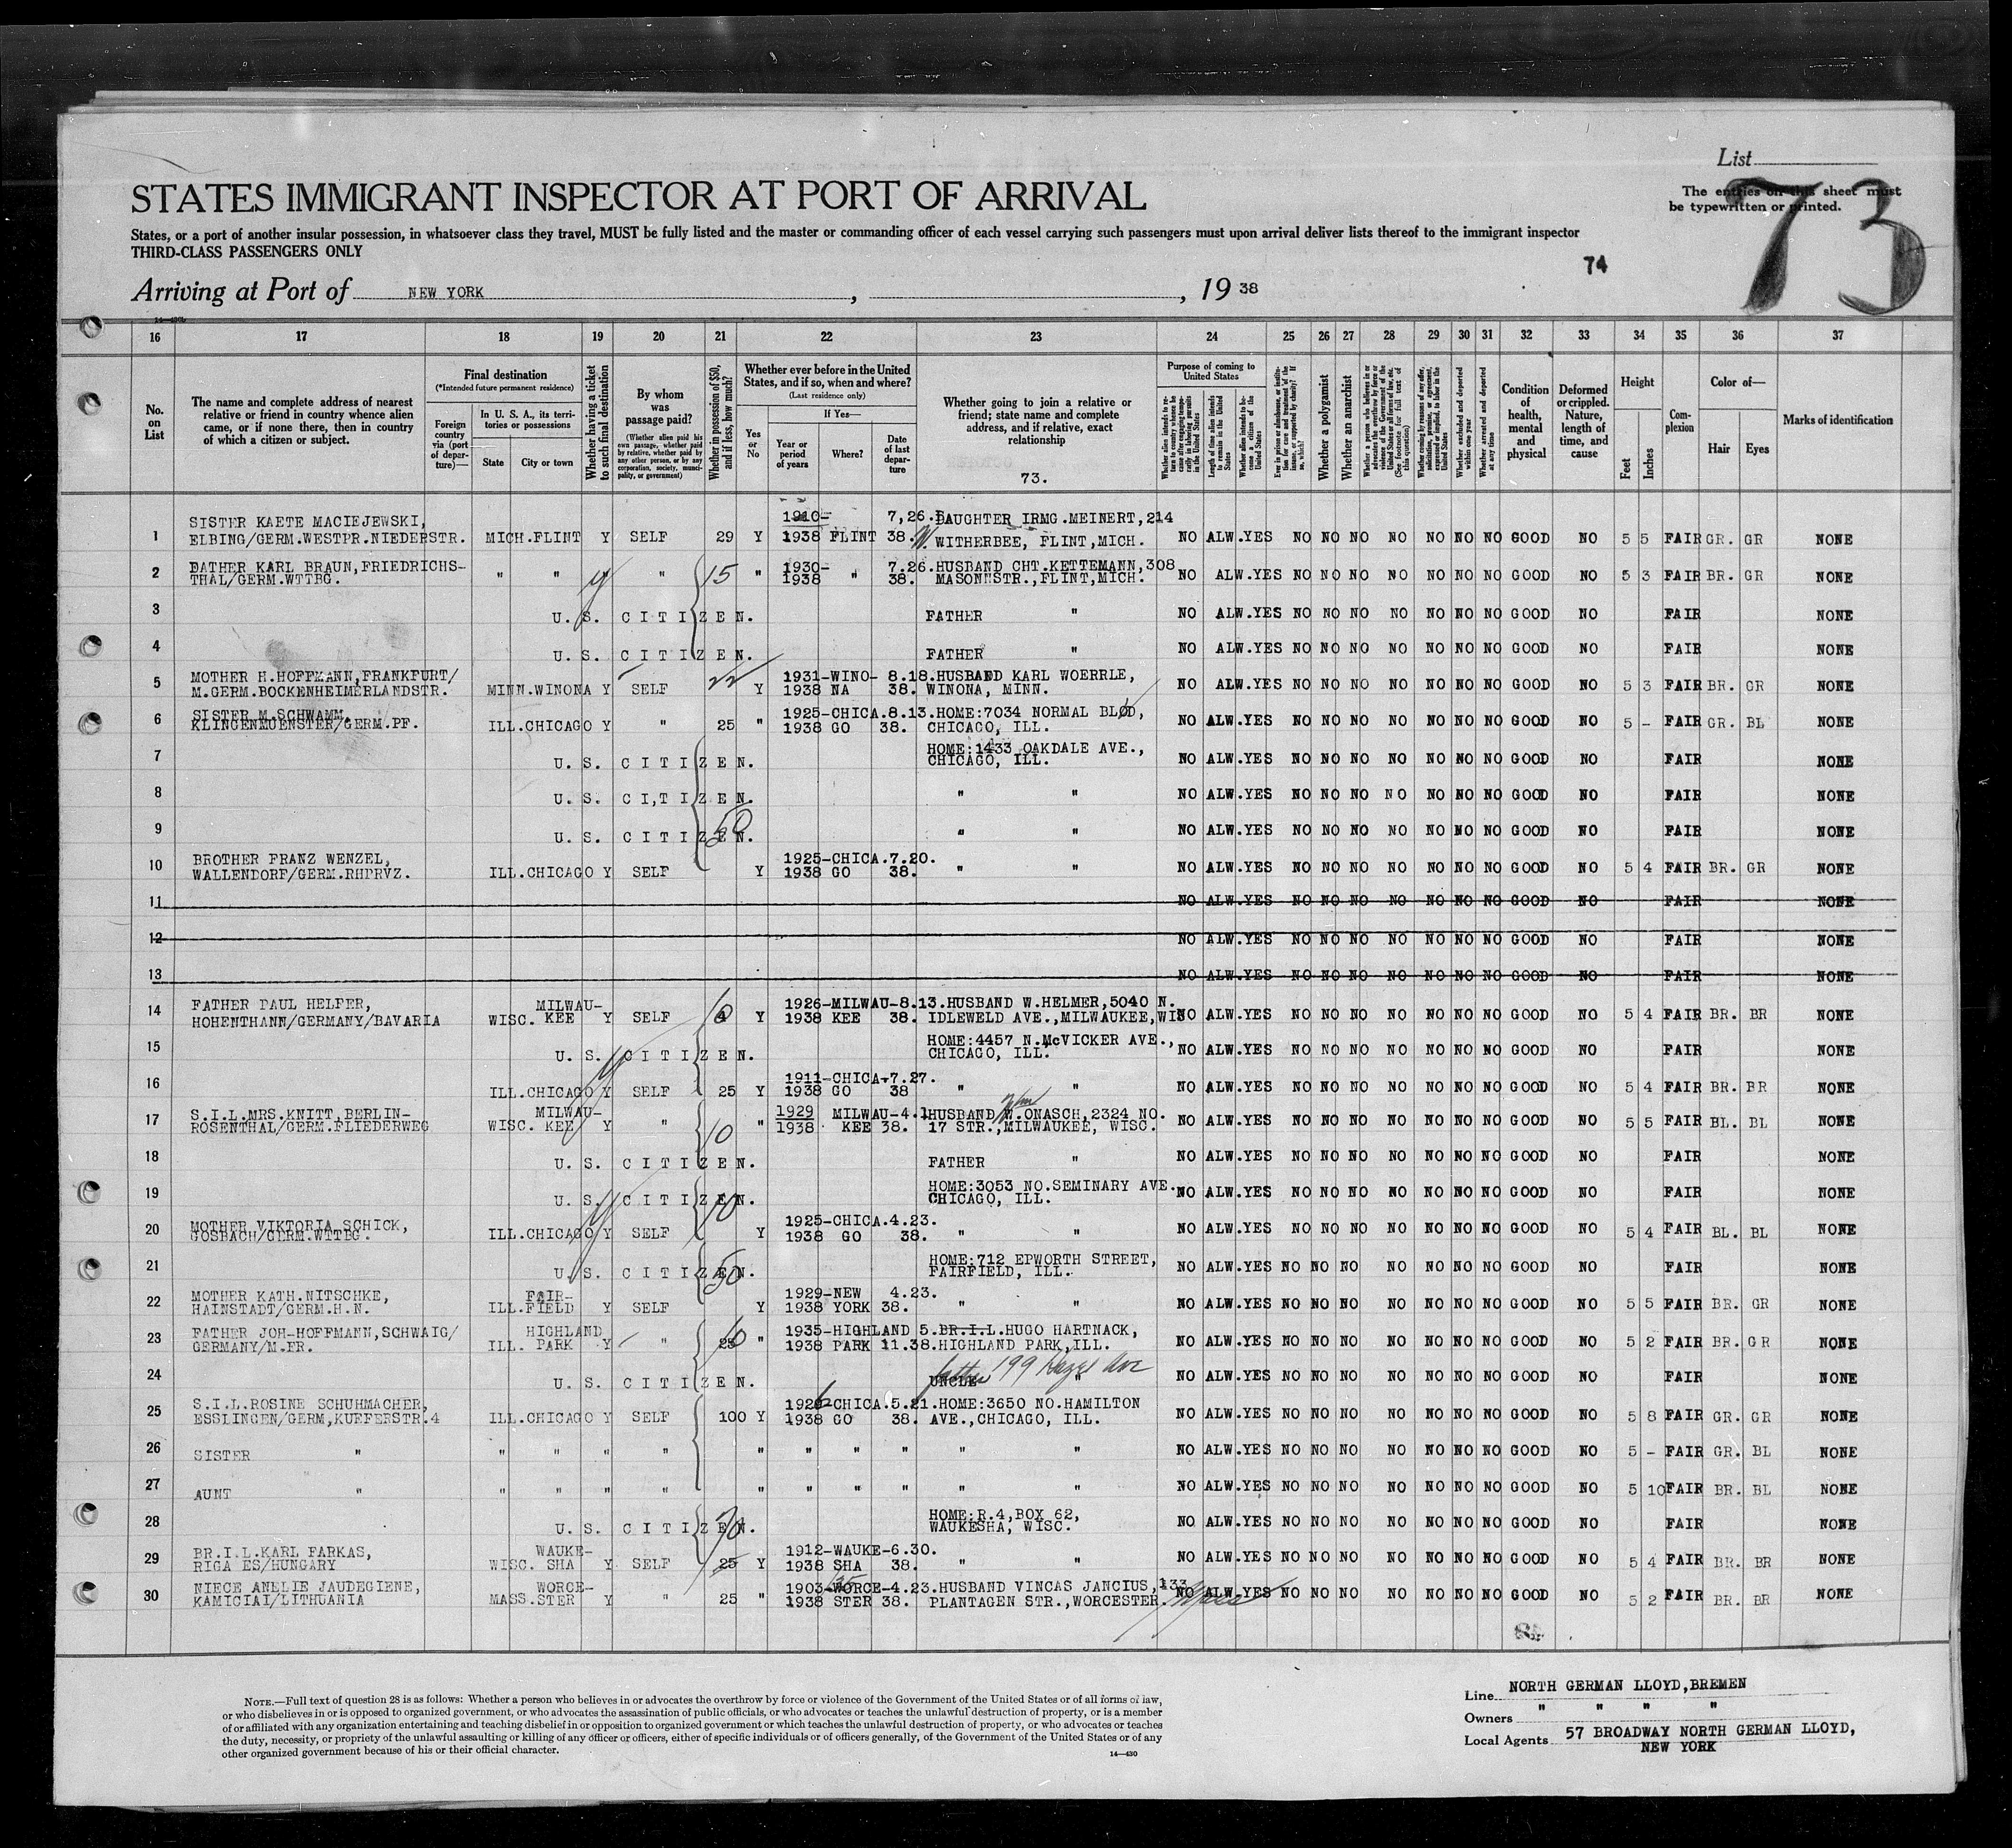 List
73
The entries on this sheet must
be typewritten or printed.
STATES IMMIGRANT INSPECTOR AT PORT OF ARRIVAL
States, or a port of another insular possession, in whatsoever class they travel, MUST be fully listed and the master or commanding officer of each vessel carrying such passengers must upon arrival deliver lists thereof to the immigrant inspector
THIRD-CLASS PASSENGERS ONLY
74
Arriving at Port of NEW YORK, , 1938
16 17 18 19 20 21 22 23 24 25 26 27 28 29 30 31 32 33 34 35 36 37
No. on List
The name and complete address of nearest relative or friend in country whence alien came, or if none there, then in country of which a citizen or subject.
Final destination
(*Intended future permanent residence)
Foreign country via (port of departure)—
In U. S. A., its territories or possessions
State City or town
Whether having a ticket to such final destination
By whom was passage paid?
(Whether alien paid his own passage, whether paid by relative, whether paid by any other person, or by any corporation, society, municipality, or government)
Whether in possession of $50, and if less, how much?
Whether ever before in the United States, and if so, when and where?
(Last residence only)
Yes or No
If Yes—
Year or period of years Where? Date of last departure
Whether going to join a relative or friend; state name and complete address, and if relative, exact relationship
73.
Purpose of coming to United States
Length of time alien intends to remain in the United States
Whether alien intends to become a citizen of the United States
Whether a polygamist
Whether an anarchist
Whether excluded and deported within one year
Whether arrested and deported at any time
Condition of health, mental and physical
Deformed or crippled. Nature, length of time, and cause
Height
Feet Inches
Complexion
Color of—
Hair Eyes
Marks of identification
1 SISTER KAETE MACIEJEWSKI, 1910- 7,26. DAUGHTER IRMG.MEINERT,214
ELBING/GERM.WESTPR.NIEDERSTR. MICH.FLINT Y SELF 29 Y 1938 FLINT 38. WITHERBEE, FLINT,MICH. NO ALW.YES NO NO NO NO NO NO NO GOOD NO 5 5 FAIR GR. GR NONE
2 FATHER KARL BRAUN,FRIEDRICHS- 1930- 7.26.HUSBAND CHT.KETTEMANN,308
THAL/GERM.WTTBG. " " y " 15 " 1938 " 38. MASONNSTR.,FLINT,MICH. NO ALW.YES NO NO NO NO NO NO NO GOOD NO 5 3 FAIR BR. GR NONE
3 U. S. CITIZEN. FATHER " NO ALW.YES NO NO NO NO NO NO NO GOOD NO FAIR NONE
4 U. S. CITIZEN. FATHER " NO ALW.YES NO NO NO NO NO NO NO GOOD NO FAIR NONE
5 MOTHER H.HOFFMANN,FRANKFURT/ 1931-WINO- 8.18.HUSBAND KARL WOERRLE,
M.GERM.BOCKENHEIMERLANDSTR. MINN.WINONA Y SELF Y 1938 NA 38. WINONA, MINN. NO ALW.YES NO NO NO NO NO NO NO GOOD NO 5 3 FAIR BR. GR NONE
6 SISTER M.SCHWAMM, 1925-CHICA.8.13.HOME:7034 NORMAL BLOD,
KLINGENMUENSTER/GERM.PF. ILL.CHICAGO Y " 25 " 1938 GO 38. CHICAGO, ILL. NO ALW.YES NO NO NO NO NO NO NO GOOD NO 5 - FAIR GR. BL NONE
7 HOME:1433 OAKDALE AVE.,
U. S. CITIZEN. CHICAGO, ILL. NO ALW.YES NO NO NO NO NO NO NO GOOD NO FAIR NONE
8 U. S. CITIZEN. " " NO ALW.YES NO NO NO NO NO NO NO GOOD NO FAIR NONE
9 U. S. CITIZEN. 50 " " NO ALW.YES NO NO NO NO NO NO NO GOOD NO FAIR NONE
10 BROTHER FRANZ WENZEL, 1925-CHICA.7.20.
WALLENDORF/GERM.RHPRVZ. ILL.CHICAGO Y SELF Y 1938 GO 38. " " NO ALW.YES NO NO NO NO NO NO NO GOOD NO 5 4 FAIR BR. GR NONE
11 NO ALW.YES NO NO NO NO NO NO NO GOOD NO FAIR NONE
12 NO ALW.YES NO NO NO NO NO NO NO GOOD NO FAIR NONE
13 NO ALW.YES NO NO NO NO NO NO NO GOOD NO FAIR NONE
14 FATHER PAUL HELFER, MILWAU- 1926-MILWAU-8.13.HUSBAND W.HELMER,5040 N.
HOHENTHANN/GERMANY/BAVARIA WISC. KEE Y SELF Y 1938 KEE 38. IDLEWELD AVE.,MILWAUKEE,WIS NO ALW.YES NO NO NO NO NO NO NO GOOD NO 5 4 FAIR BR. BR NONE
15 HOME:4457 N.McVICKER AVE.,
U. S. CITIZEN. CHICAGO, ILL. NO ALW.YES NO NO NO NO NO NO NO GOOD NO FAIR NONE
16 1911-CHICA-7.27.
ILL.CHICAGO Y SELF 25 Y 1938 GO 38 " " NO ALW.YES NO NO NO NO NO NO NO GOOD NO 5 4 FAIR BR. BR NONE
17 S.I.L.MRS.KNITT,BERLIN- MILWAU- 1929 MILWAU-4.1 HUSBAND W.ONASCH,2324 NO.
ROSENTHAL/GERM.FLIEDERWEG WISC. KEE Y " 10 " 1938 KEE 38. 17 STR.,MILWAUKEE, WISC. NO ALW.YES NO NO NO NO NO NO NO GOOD NO 5 5 FAIR BL. BL NONE
18 U. S. CITIZEN. FATHER " NO ALW.YES NO NO NO NO NO NO NO GOOD NO FAIR NONE
19 HOME:3053 NO.SEMINARY AVE.
U. S. CITIZEN. 10 CHICAGO, ILL. NO ALW.YES NO NO NO NO NO NO NO GOOD NO FAIR NONE
20 MOTHER VIKTORIA SCHICK, 1925-CHICA.4.23.
GOSBACH/GERM.WTTBG. ILL.CHICAGO Y SELF Y 1938 GO 38. " " NO ALW.YES NO NO NO NO NO NO NO GOOD NO 5 4 FAIR BL. BL NONE
21 HOME:712 EPWORTH STREET,
U. S. CITIZEN. 50 FAIRFIELD, ILL. NO ALW.YES NO NO NO NO NO NO NO GOOD NO FAIR NONE
22 MOTHER KATH.NITSCHKE, FAIR- 1929-NEW 4.23.
HAINSTADT/GERM.H.N. ILL.FIELD Y SELF Y 1938 YORK 38. " " NO ALW.YES NO NO NO NO NO NO NO GOOD NO 5 5 FAIR BR. GR NONE
23 FATHER JOH-HOFFMANN,SCHWAIG/ HIGHLAND 1935-HIGHLAND 5.BR.I.L.HUGO HARTNACK,
GERMANY/M.FR. ILL. PARK Y " 25 " 1938 PARK 11.38.HIGHLAND PARK,ILL. NO ALW.YES NO NO NO NO NO NO NO GOOD NO 5 2 FAIR BR. GR NONE
24 father 199 Hazel Ave
U. S. CITIZEN. UNCLE " NO ALW.YES NO NO NO NO NO NO NO GOOD NO FAIR NONE
25 S.I.L.ROSINE SCHUHMACHER, 1926-CHICA.5.21.HOME:3650 NO.HAMILTON
ESSLINGEN/GERM,KUEFERSTR.4 ILL.CHICAGO Y SELF 100 Y 1938 GO 38. AVE.,CHICAGO, ILL. NO ALW.YES NO NO NO NO NO NO NO GOOD NO 5 8 FAIR GR. GR NONE
26 SISTER " " " " " " " " " " " NO ALW.YES NO NO NO NO NO NO NO GOOD NO 5 - FAIR GR. BL NONE
27 AUNT " " " " " " " " " " " NO ALW.YES NO NO NO NO NO NO NO GOOD NO 5 10 FAIR BR. BL NONE
28 HOME:R.4,BOX 62,
U. S. CITIZEN. WAUKESHA, WISC. NO ALW.YES NO NO NO NO NO NO NO GOOD NO FAIR NONE
29 BR.I.L.KARL FARKAS, WAUKE- 1912-WAUKE-6.30.
RIGA ES/HUNGARY WISC. SHA Y SELF 25 Y 1938 SHA 38. " " NO ALW.YES NO NO NO NO NO NO NO GOOD NO 5 4 FAIR BR. BR NONE
30 NIECE ANELIE JAUDEGIENE, WORCE- 1903-WORCE-4.23.HUSBAND VINCAS JANCIUS,133
KAMICIAI/LITHUANIA MASS.STER Y " 25 " 1938 STER 38. PLANTAGEN STR.,WORCESTER. Mass NO ALW.YES NO NO NO NO NO NO NO GOOD NO 5 2 FAIR BR. BR NONE
NOTE.—Full text of question 28 is as follows: Whether a person who believes in or advocates the overthrow by force or violence of the Government of the United States or of all forms of law,
or who disbelieves in or is opposed to organized government, or who advocates the assassination of public officials, or who advocates or teaches the unlawful destruction of property, or is a member
of or affiliated with any organization entertaining and teaching disbelief in or opposition to organized government or which teaches the unlawful destruction of property, or who advocates or teaches
the duty, necessity, or propriety of the unlawful assaulting or killing of any officer or officers, either of specific individuals or of officers generally, of the Government of the United States or of any
other organized government because of his or their official character.
14—430
Line NORTH GERMAN LLOYD,BREMEN
Owners " " " "
Local Agents 57 BROADWAY NORTH GERMAN LLOYD,
NEW YORK